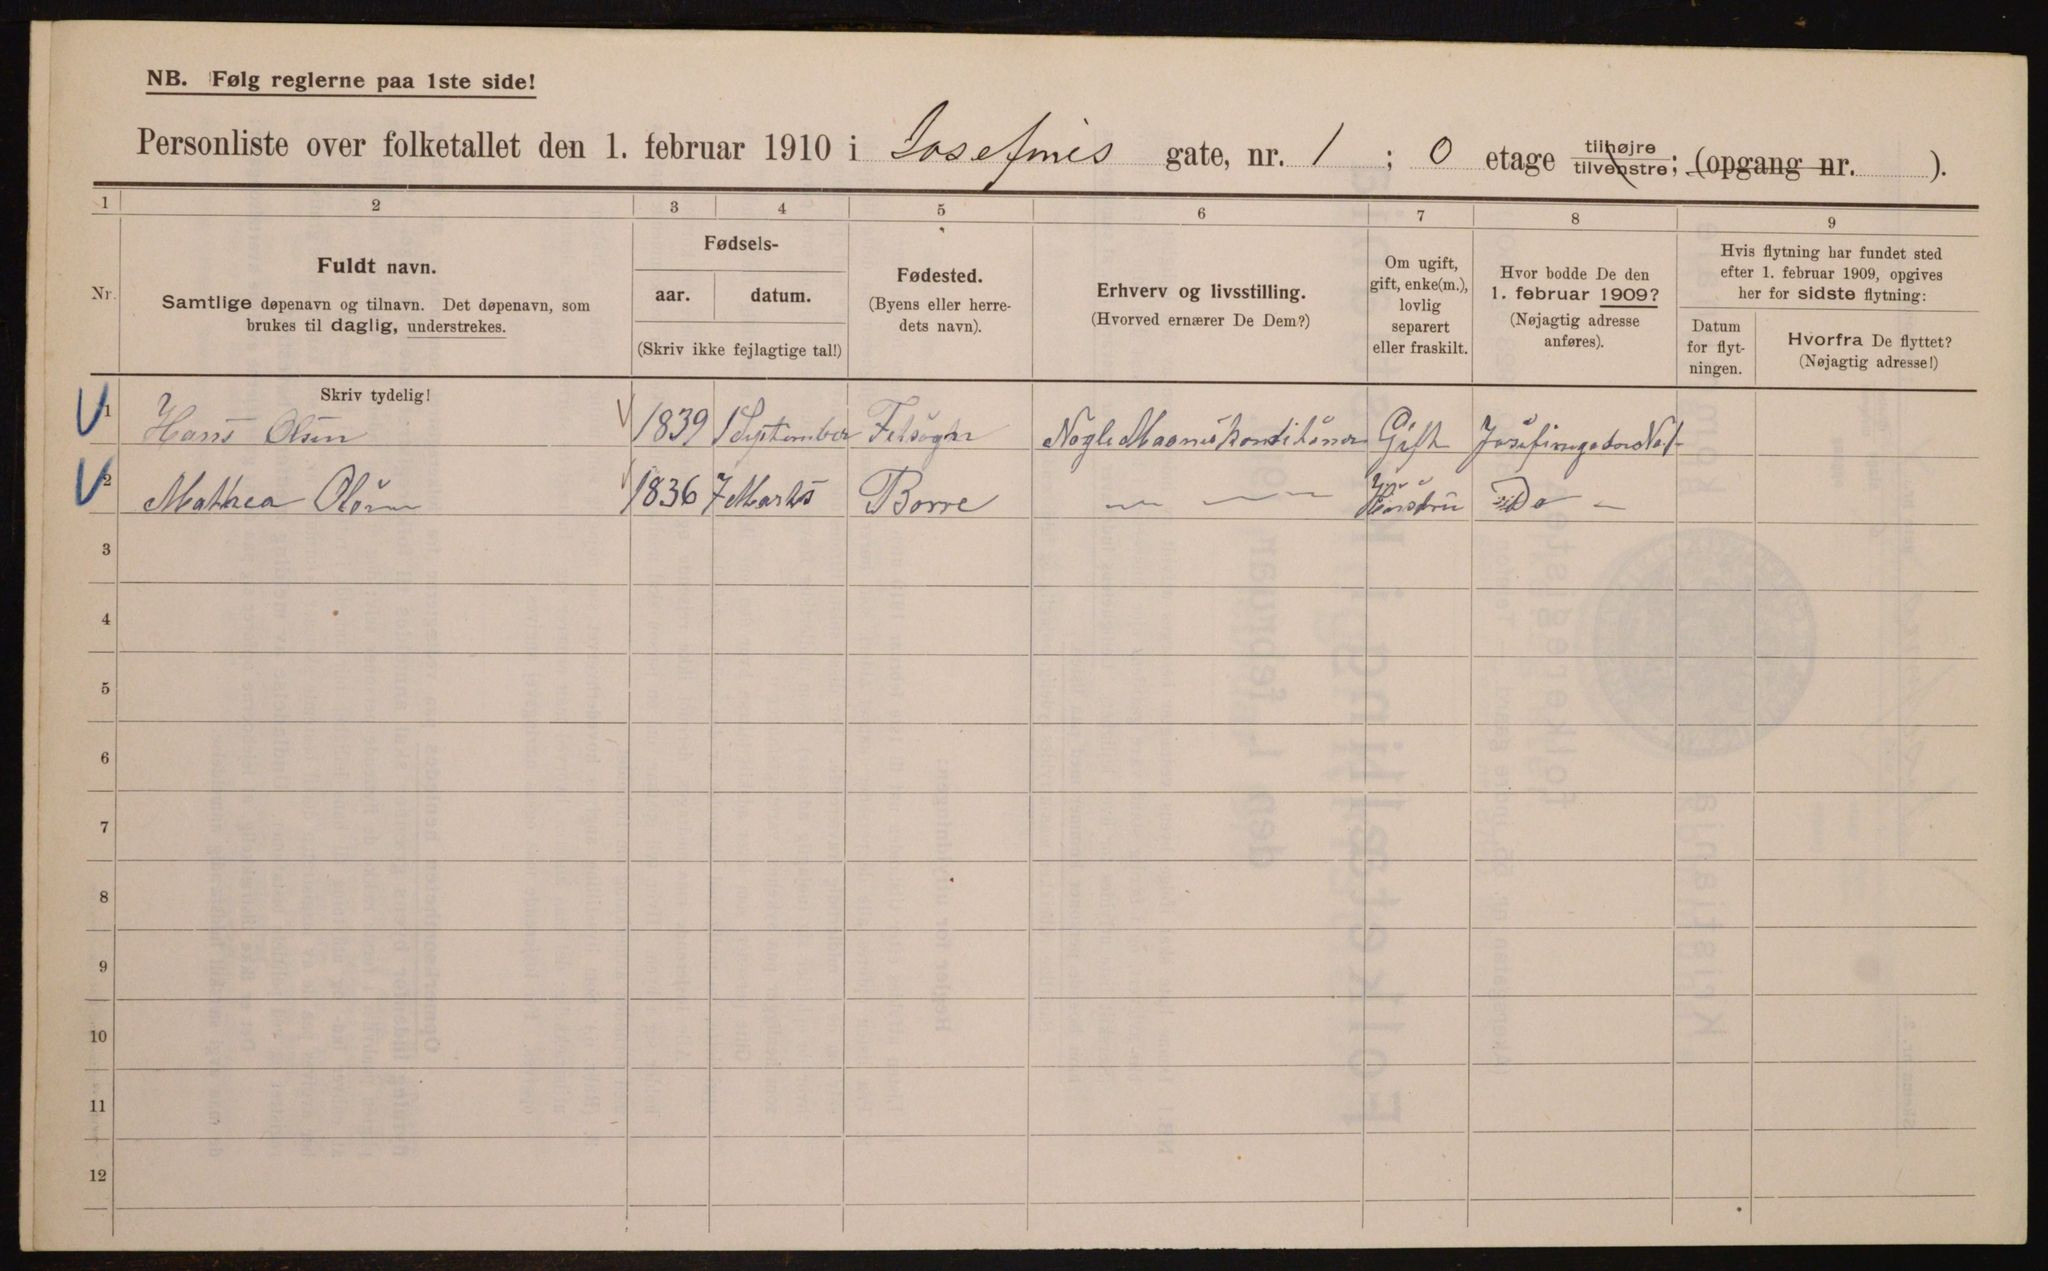 NB. Følg reglerne paa 1ste side!
Personliste over folketallet den 1. februar 1910 i Josefines gate, nr. 1 ; 0 etage tilhøjre tilvenstre; (opgang nr. ).
1 2 3 4 5 6 7 8 9
Nr.
Fuldt navn.
Samtlige døpenavn og tilnavn. Det døpenavn, som
brukes til daglig, understrekes.
Skriv tydelig!
Fødsels-
aar. datum.
(Skriv ikke fejlagtige tal!)
Fødested.
(Byens eller herre-
dets navn).
Erhverv og livsstilling.
(Hvorved ernærer De Dem?)
Om ugift,
gift, enke(m.),
lovlig
separert
eller fraskilt.
Hvor bodde De den
1. februar 1909?
(Nøjagtig adresse
anføres).
Hvis flytning har fundet sted
efter 1. februar 1909, opgives
her for sidste flytning:
Datum
for flyt-
ningen.
Hvorfra De flyttet?
(Nøjagtig adresse!)
1 Hans Olsen 1839 1 September Gift
2 Mathea Olsen 1836 7 Marts Borre — — — Hüstrü Do —
3
4
5
6
7
8
9
10
11
12